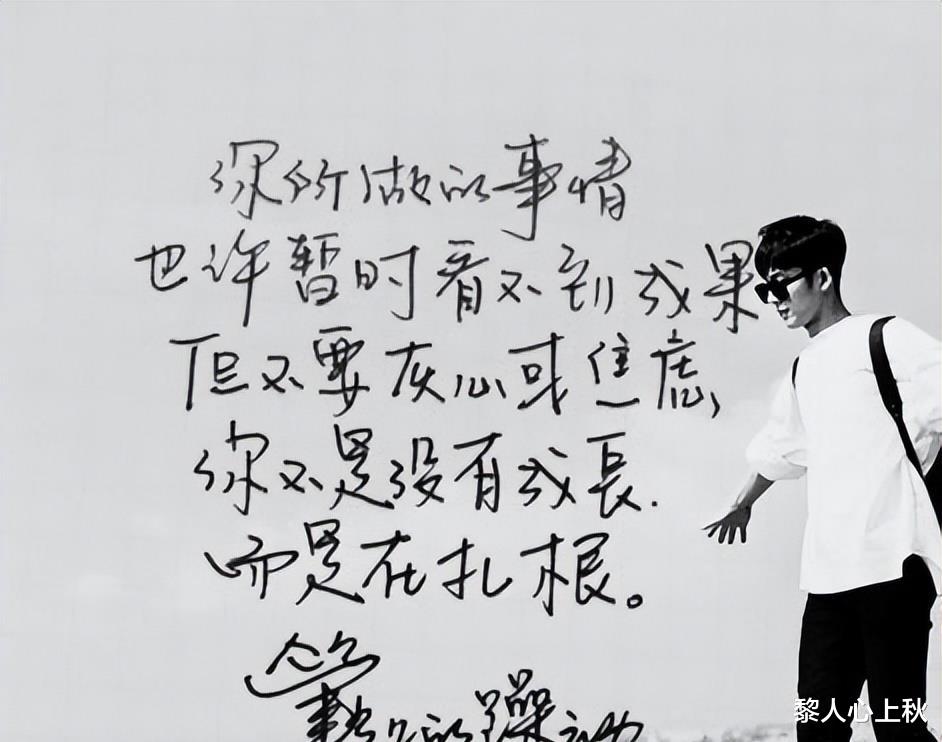 你所做的事情
也许暂时看不到成果
但不要灰心或焦虑,
你不是没有成長.
而是在扎根。
黎人心上秋